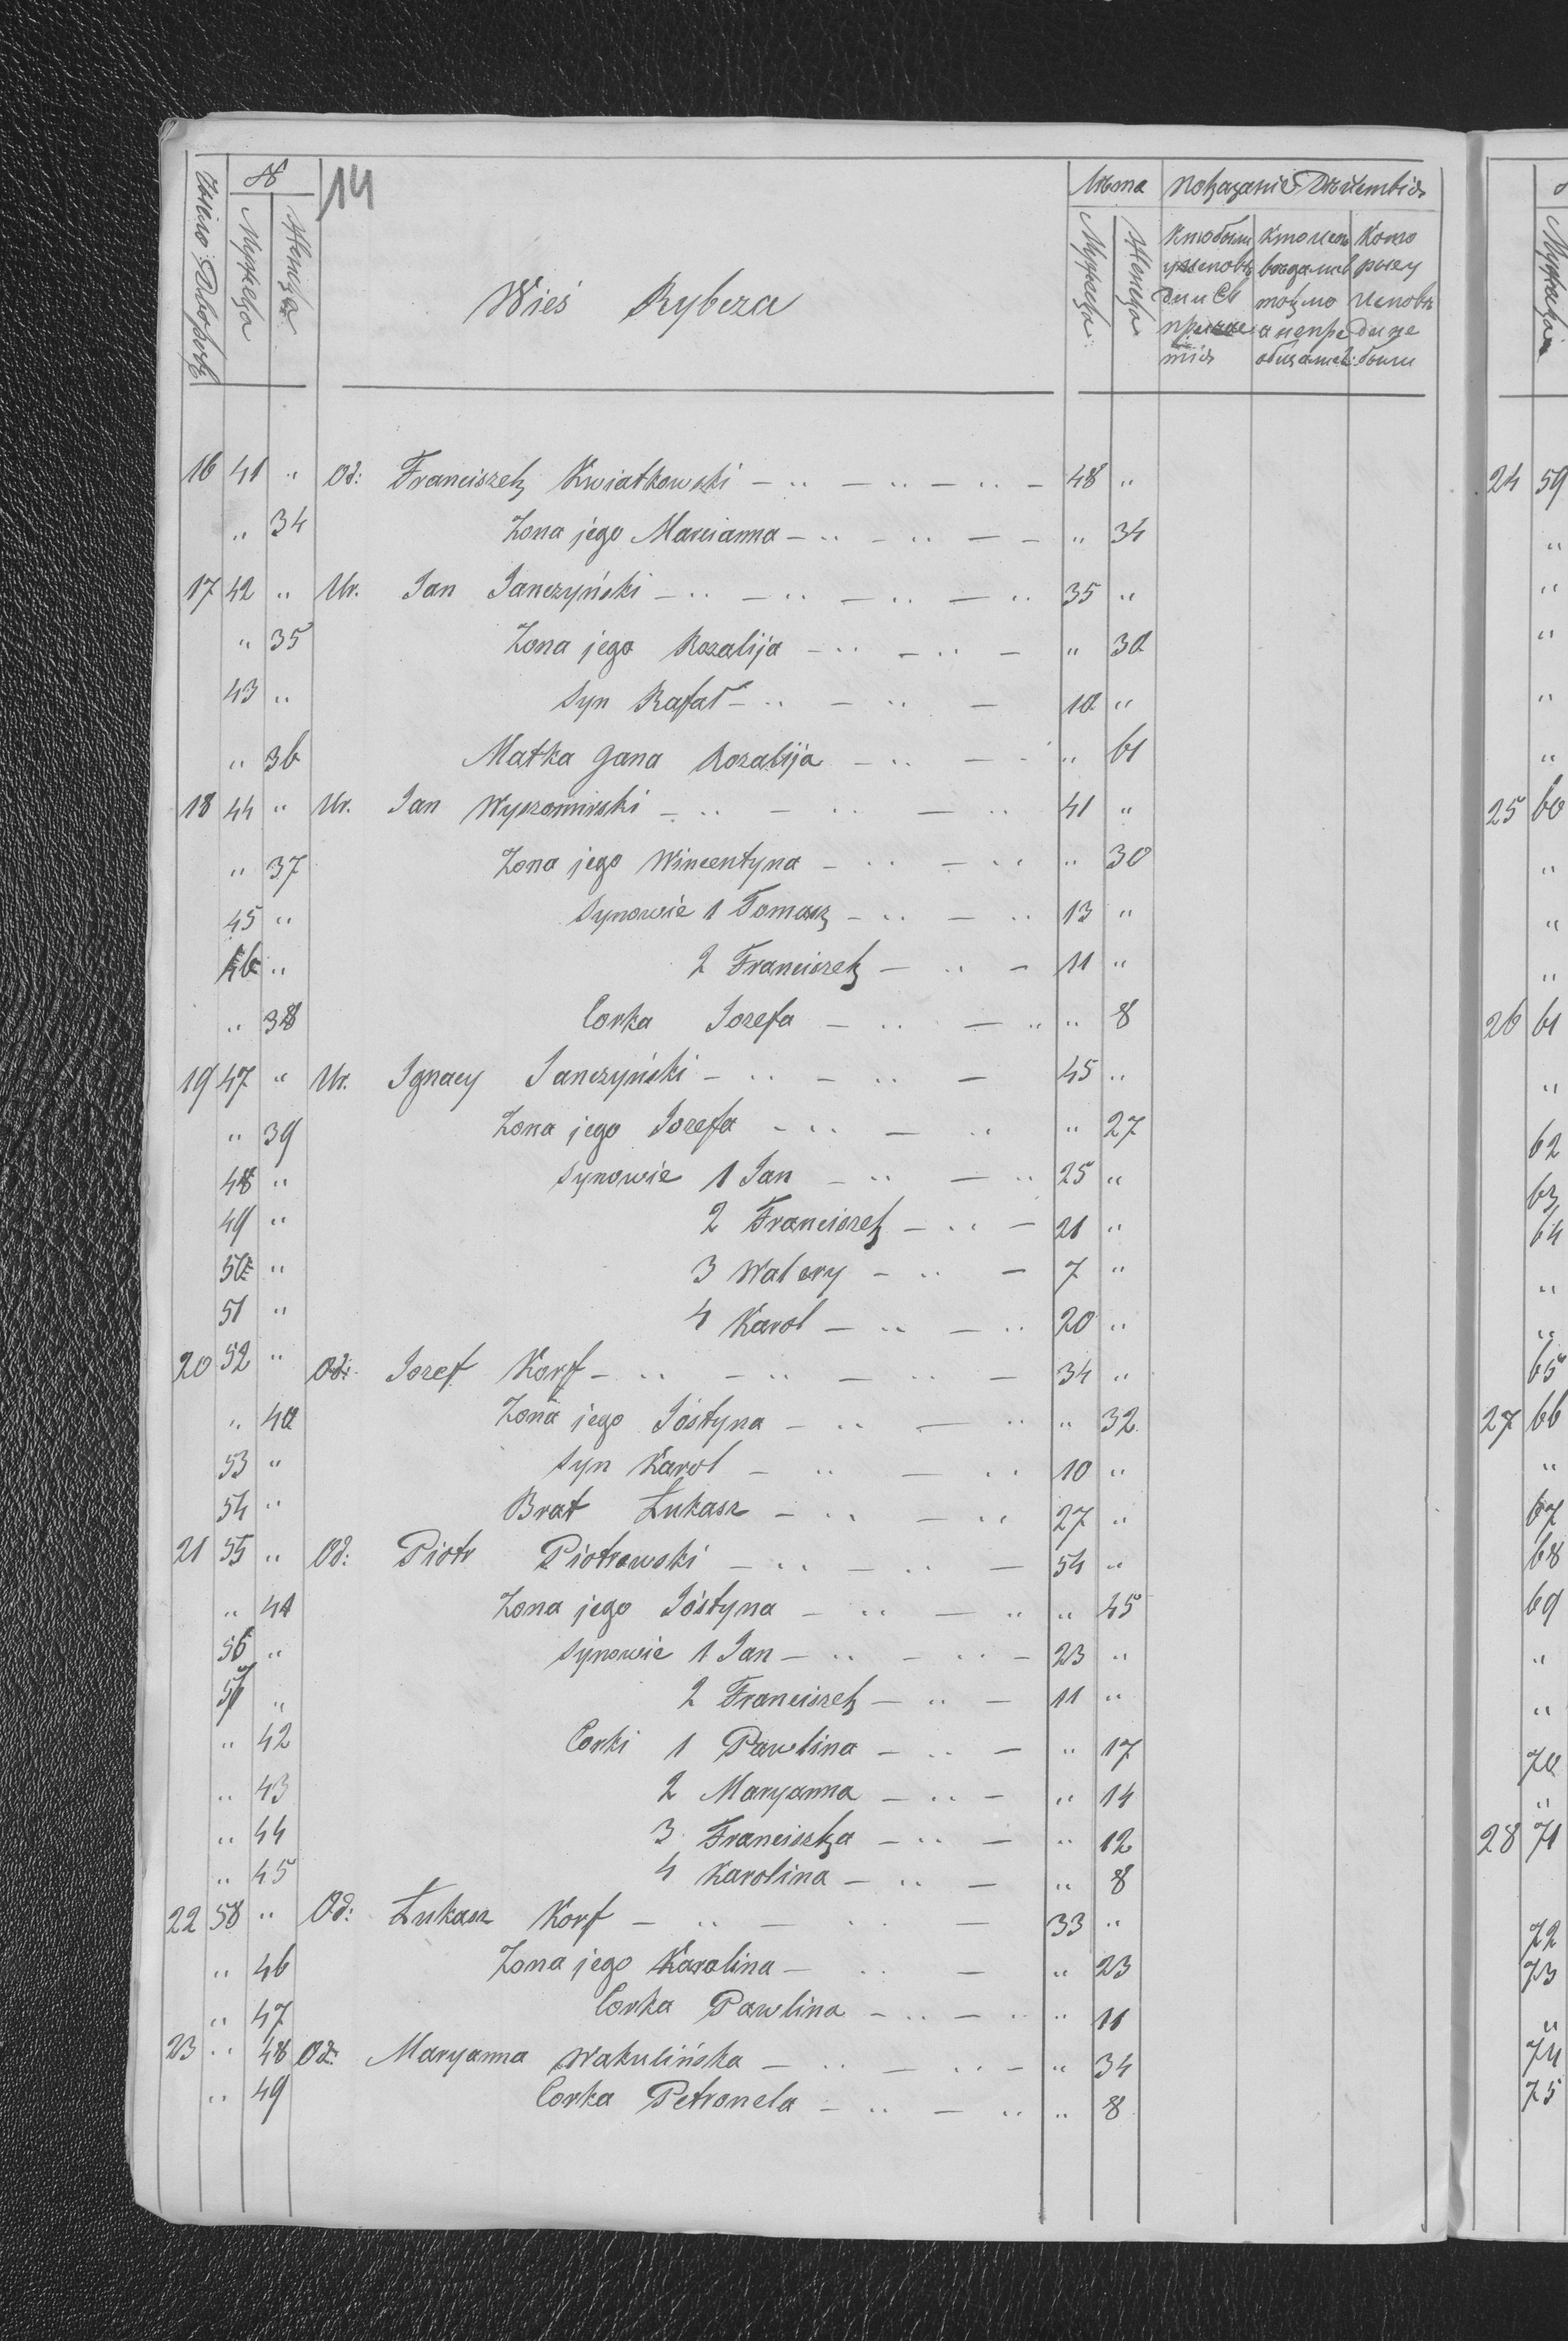 14
№ Лѣта Показанiе Дѣйствiя
Число Дворовъ Мужеска Женска Мужеска Женска
Wieś Rybcza
16 41 " Od: Franciszek Kwiatkowski — " — " — " — 48 "
" 34 Zona jego Marcianna — " — " — — " 34
17 42 " Ur. Jan Janczyński — " — " — " — " 35 "
" 35 Zona jego Rozalija — " — " — " 30
43 " Syn Rafał — " — " — 10 "
" 36 Matka Jana Rozalija — " — " " 61
18 44 " Ur. Jan Wyszomirski — " — " — " 41 "
" 37 Zona jego Wincentyna — " — " " 30
45 " Synowie 1 Tomasz — " — " 13 "
46 " 2 Franciszek — " — 11 "
" 38 Corka Jozefa — " — " " 8
19 47 " Ur. Ignacy Janczyński — " — " — 45 "
" 39 Zona jego Jozefa — " — " " 27
48 " Synowie 1 Jan — " — " 25 "
49 " 2 Franciszek — " — 21 "
50 " 3 Walery — " — 7 "
51 " 4 Karol — " — " 20 "
20 52 " Od: Jozef Korf — " — " — " — 34 "
" 40 Zona jego Jóstyna — " — " " 32
53 " Syn Karol — " — " 10 "
54 " Brat Łukasz — " — " 27 "
21 55 " Od: Piotr Piotrowski — " — " — 54 "
" 41 Zona jego Jóstyna — " — " " 45
56 " Synowie 1 Jan — " — " — 23 "
57 " 2 Franciszek — " — 11 "
" 42 Corki 1 Pawlina — " — " 17
" 43 2 Maryanna — " — " 14
" 44 3 Franciszka — " — " 12
" 45 4 Karolina — " — " 8
22 58 " Od: Łukasz Korf — " — " — 33 "
" 46 Zona jego Karolina — " — " 23
" 47 Corka Pawlina — " — " " 11
23 " 48 Od: Maryanna Wakulińska — " — " — " 34
" 49 Corka Petronela — " — " " 8
24 59
"
"
"
"
"
25 60
"
"
"
26 61
"
62
63
64
"
"
65
27 66
"
67
68
69
"
"
70
"
28 71
72
73
"
74
75